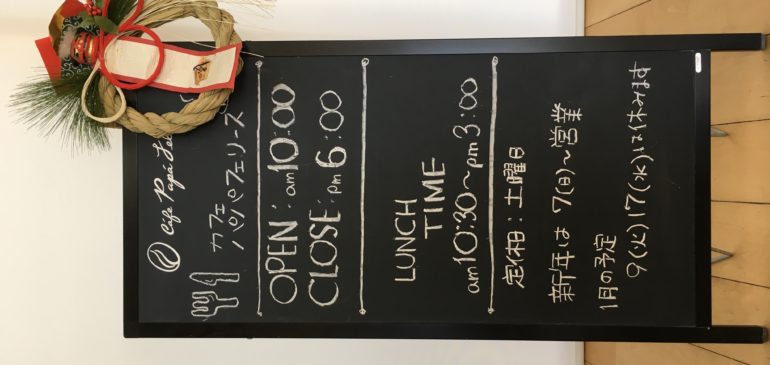 Cafe Papa
カフェ
パパフェリーズ
OPEN: am 10:00
CLOSE: pm 6:00
LUNCH
TIME
am 10:30~pm 3:00
定休日:土曜日
新年は 7(日)~営業
1月の予定
9(火)17(水)は休みます